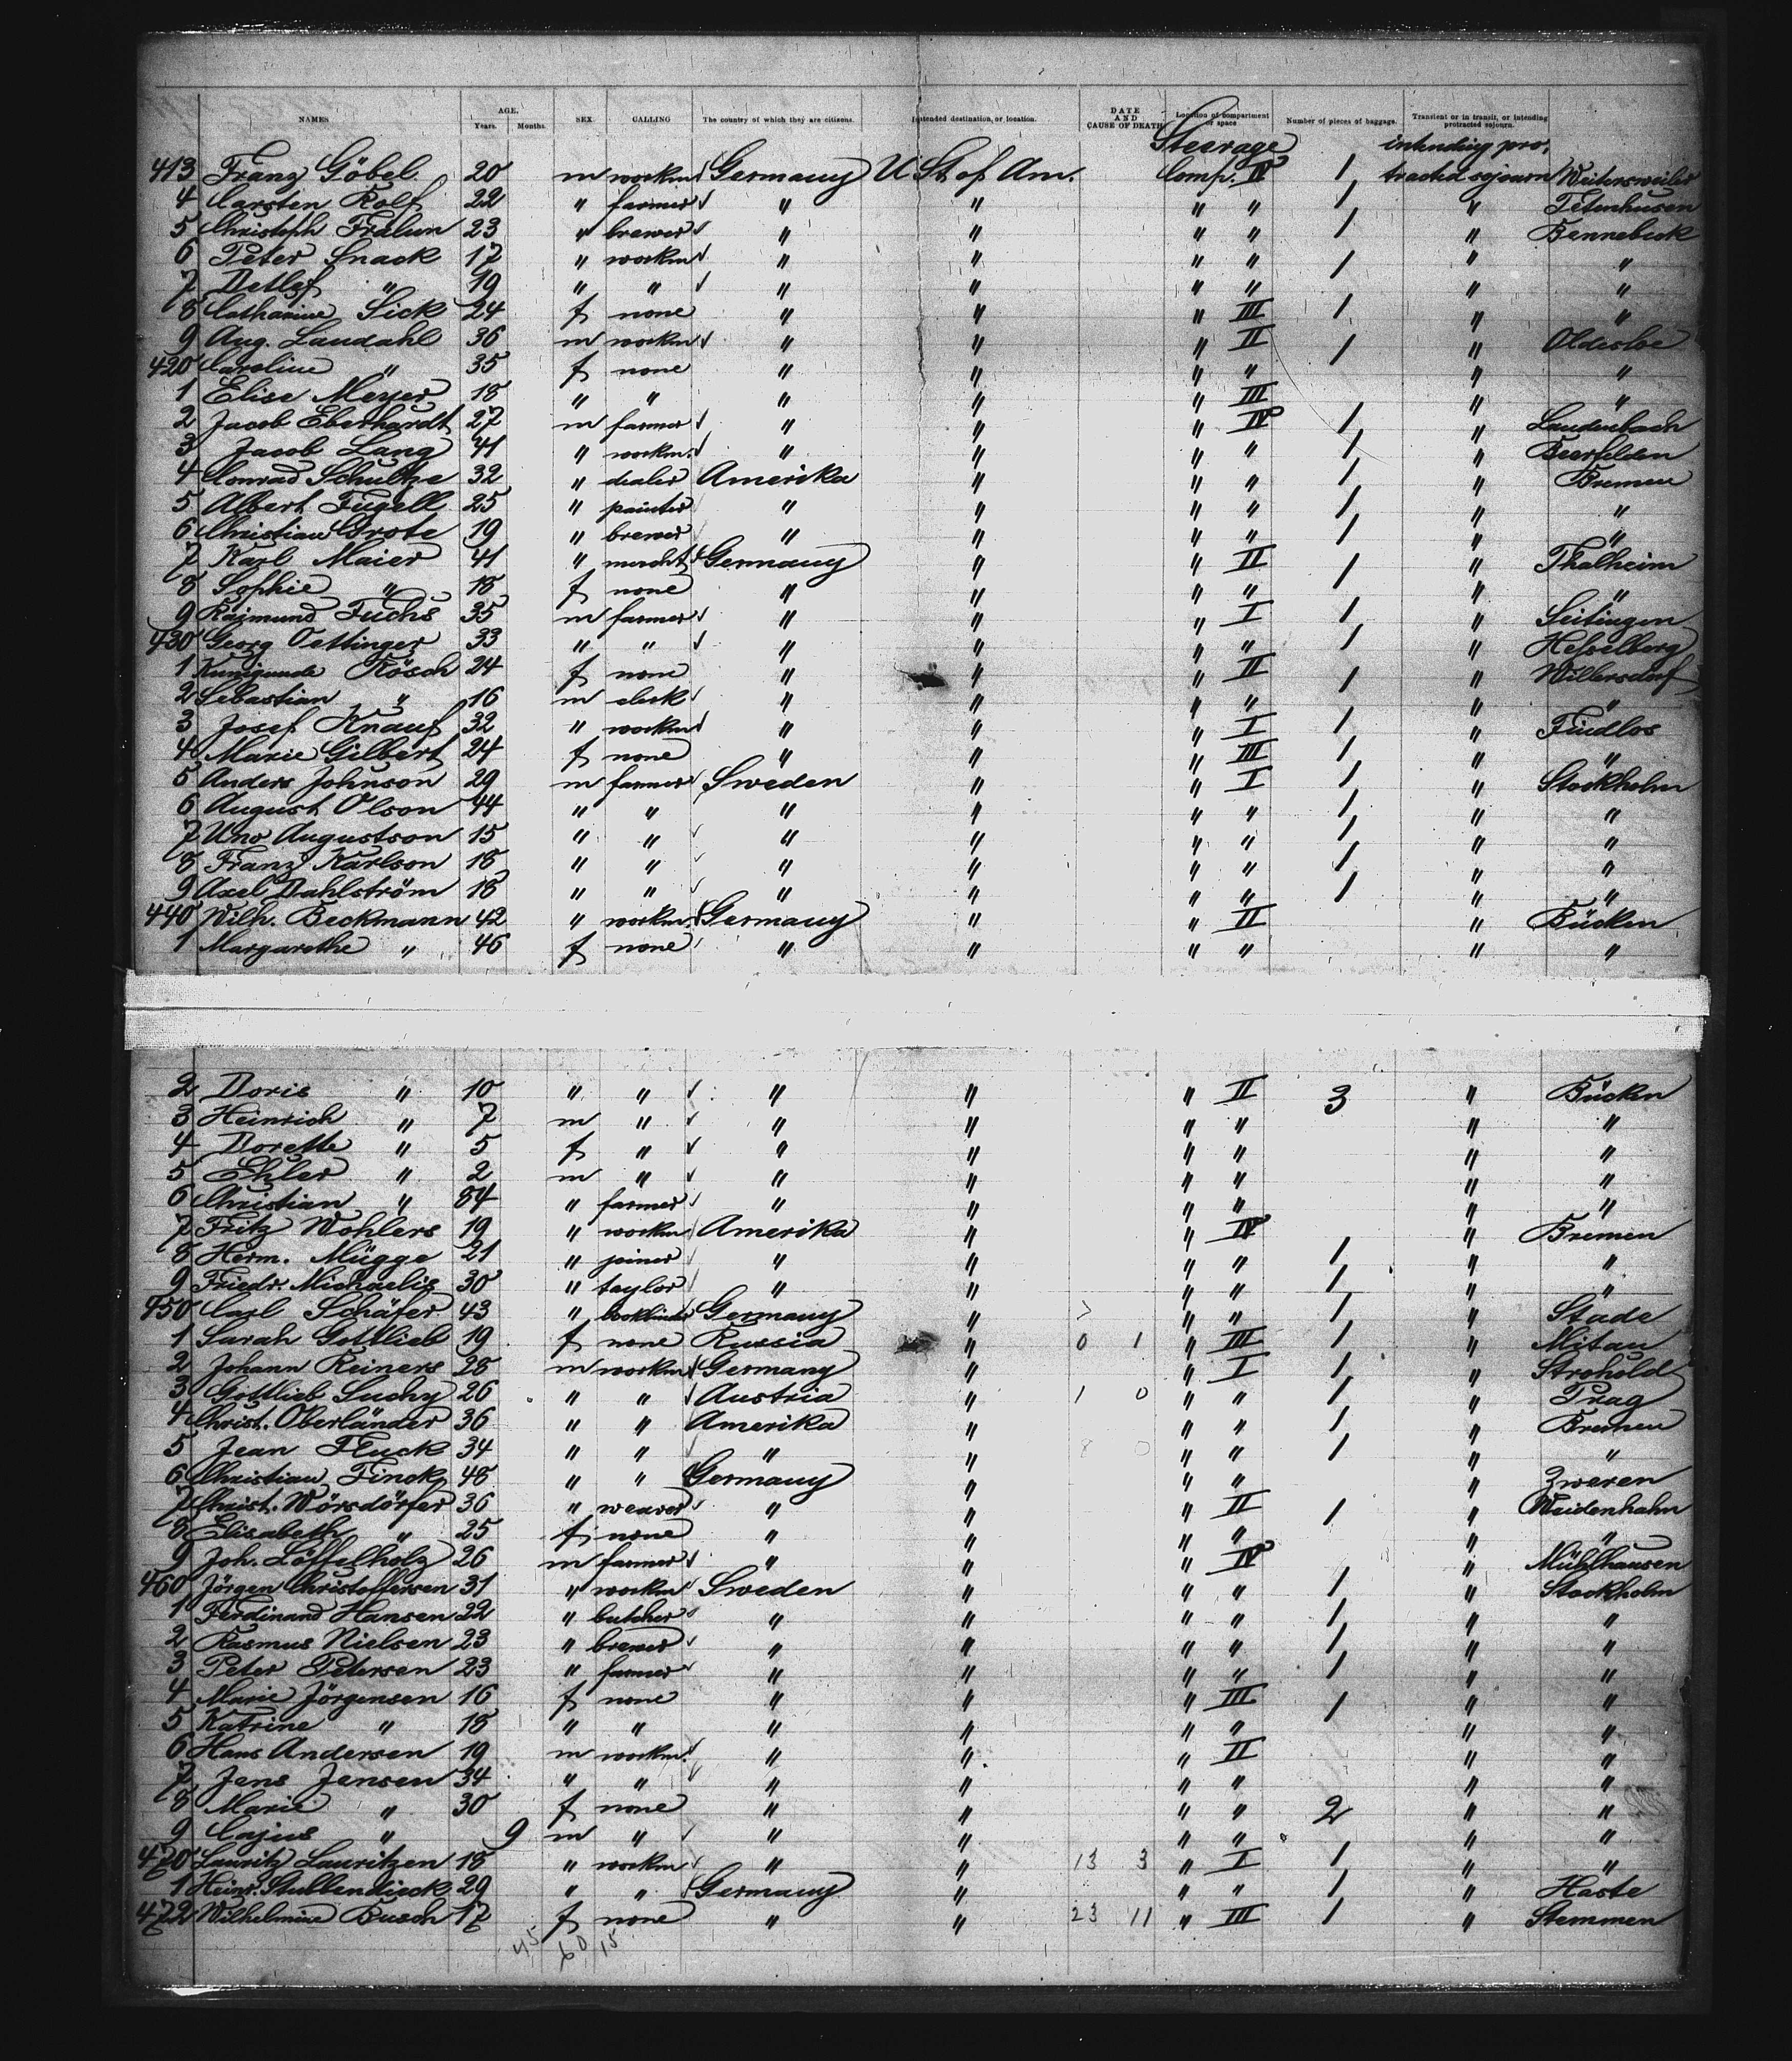 NAMES AGE. Years. Months. SEX. CALLING The country of which they are citizens. Intended destination, or location. DATE AND CAUSE OF DEATH Location of compartment or space Number of pieces of baggage. Transient or in transit, or intending protracted sojourn.
Steerage intending pro-
413 Franz Göbel 20 m workm Germany U St of Am. Comp. IV 1 tracted sojourn Weitersweiler
4 Carsten Rolf 22 " farmer " " " " 1 " Tetenhusen
5 Christoph Frahm 23 " brewer " " " " 1 " Bennebeck
6 Peter Snack 17 " workm " " " " 1 " "
7 Detlef " 19 " " " " " " " "
8 Catharine Sick 24 f none " " " III 1 " "
9 Aug. Landahl 36 m workm " " " II 1 " Oldesloe
420 Caroline " 35 f none " " " " " "
1 Elise Meyer 18 " " " " " III " "
2 Jacob Eberhardt 27 m farmer " " " IV 1 " Laudenbach
3 Jacob Lang 41 " workm. " " " " 1 " Beerfelden
4 Conrad Schultze 32 " dealer Amerika " " " 1 " Bremen
5 Albert Fugell 25 " painter " " " " 1 " "
6 Christian Grote 19 " brewer " " " " 1 " "
7 Karl Maier 41 " mercht Germany " " II 1 " Thalheim
8 Sophie " 18 f none " " " " " "
9 Raimund Fuchs 35 m farmer " " " I 1 " Seitingen
430 Georg Oettinger 33 " " " " " " 1 " Hesselberg
1 Kunigunde Rösch 24 f none " " " II 1 " Willersdorf
2 Sebastian " 16 m clerk " " " " " "
3 Josef Knauf 32 " workm " " " I 1 " Findlos
4 Marie Gilbert 24 f none " " " III 1 " "
5 Anders Johnson 29 m farmer Sweden " " I 1 " Stockholm
6 August Olson 44 " " " " " " 1 " "
7 Uno Augustson 15 " " " " " " 1 " "
8 Franz Karlson 18 " " " " " " 1 " "
9 Axel Dahlström 18 " " " " " " 1 " "
440 Wilh. Beckmann 42 " workm. Germany " " II " Bücken
1 Margarethe " 46 f none " " " " " "
2 Doris " 10 " " " " " II 3 " Bücken
3 Heinrich " 7 m " " " " " " "
4 Dorette " 5 f " " " " " " "
5 Ehler " 2 m " " " " " " "
6 Christian " 84 " farmer " " " " " "
7 Fritz Wohlers 19 " workm Amerika " " IV " Bremen
8 Herm. Mügge 21 " joiner " " " " 1 " "
9 Friedr. Michaelis 30 " taylor " " " " 1 " "
450 Carl Schäfer 43 " bookbinder Germany " " " 1 " Stade
1 Sarah Gottlieb 19 f none Russia " 0 1 " III 1 " Mitau
2 Johann Reiners 28 m workm Germany " " I 1 " Strohold
3 Gottlieb Suchy 26 " " Austria " 1 0 " " 1 " Prag
4 Christ. Oberländer 36 " " Amerika " " " 1 " Bremen
5 Jean Fluck 34 " " " " 8 0 " " 1 " "
6 Christian Finck 48 " " Germany " " " " Zweren
7 Christ. Wörsdörfer 36 " weaver " " " II 1 " Weidenhahn
8 Elisabeth " 25 f none " " " " " "
9 Joh. Löffelholz 26 m farmer " " " IV " Mühlhausen
460 Jörgen Christoffersen 31 " workm Sweden " " " 1 " Stockholm
1 Ferdinand Hansen 22 " butcher " " " " 1 " "
2 Rasmus Nielsen 23 " brewer " " " " 1 " "
3 Peter Petersen 23 " farmer " " " " 1 " "
4 Marie Jörgensen 16 f none " " " III 1 " "
5 Katrine " 18 " " " " " " " "
6 Hans Andersen 19 m workm. " " " II " "
7 Jens Jensen 34 " " " " " " " "
8 Marie " 30 f none " " " " 2 " "
9 Cajus " 9 m " " " " " " "
470 Lauritz Lauritzen 18 " workm " " 13 3 " I 1 " "
1 Heinr. Stubbendieck 29 " " Germany " " " 1 " Haste
472 Wilhelmine Busch 17 f none " " 23 11 " III 1 " Stemmen
45 60 15